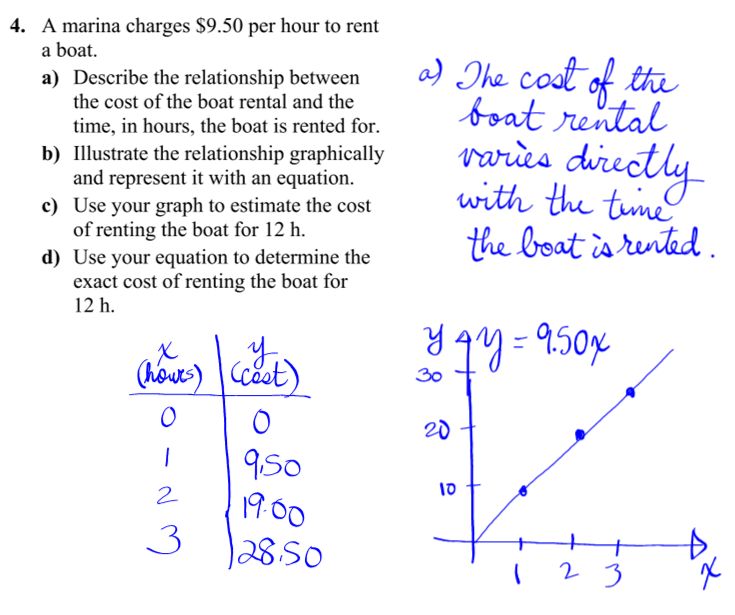 4. A marina charges $9.50 per hour to rent
a boat.
a) Describe the relationship between
the cost of the boat rental and the
time, in hours, the boat is rented for.
b) Illustrate the relationship graphically
and represent it with an equation.
c) Use your graph to estimate the cost
of renting the boat for 12 h.
d) Use your equation to determine the
exact cost of renting the boat for
12 h.
a) The cost of the
boat rental
varies directly
with the time
the boat is rented.
x y
(hours) (cost)
0 0
1 9.50
2 19.00
3 28.50
y y = 9.50x
30
20
10
1 2 3 x